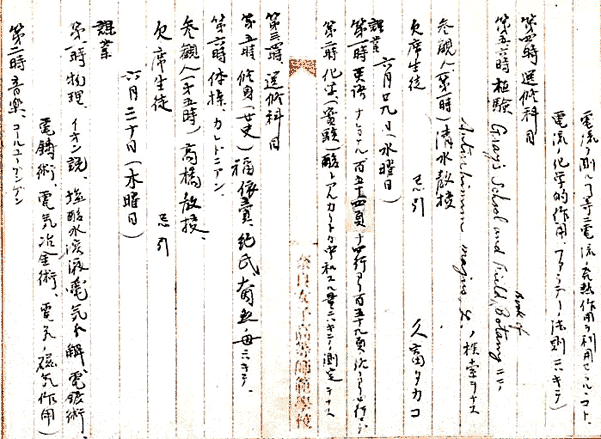 電流ヲ測ル事、電流ノ発熱作用ヲ利用セルコト、
電流ノ化学的作用、ファラデーノ法則ニツキテ)
第四時 選修科目
第五六時 植験 Gray's School and Field, Book of Botany ニテ
ノ検索ヲナス
参観人(第一時) 清水教授
欠席生徒 忌引 久富タカコ
六月廿九日(水曜日)
課業
第一時 英語 ナショナル 百五十四頁 十四行ヨリ百五十九頁
第二時 化学(実験) 酸トアルカリトノ中和スル量ニツキテノ測定ヲナス
第三四時 選修科目
第五時 修身(女史)
第六時 体操、カレドニアン、
参観人(第五時) 高橋教授、
欠席生徒 忌引
六月三十日(木曜日)
課業
第一時 物理、イオン説、塩酸水溶液ノ電気分解、電鍍術、
電鋳術、電気冶金術、電気ノ磁気作用)
第二時 音楽、コールユーブンゲン
奈良女子高等師範學校